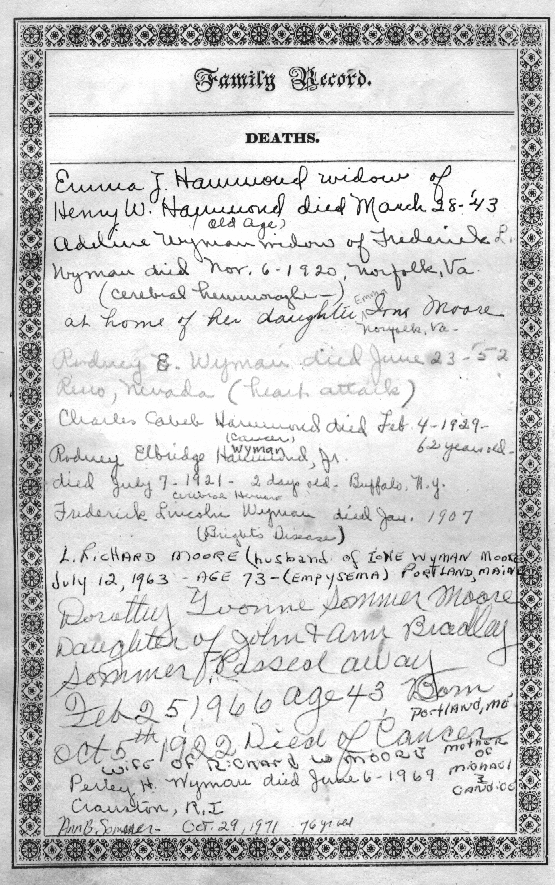 Family Record.
DEATHS.
Emma J. Hammond widow of
Henry W. Hammond died March 28-'43
(old Age)
Adeline Wyman widow of Frederick L.
Wyman died Nov. 6-1920, Norfolk, Va.
(cerebral hemmoraghe-)
at home of her daughter, Emma Ione Moore
Norfolk, Va-
Rodney E. Wyman died June 23-'52
Reno, Nevada (heart attack)
Charles Caleb Hammond died Feb. 4-1929-
(cancer) 62 years old-
Rodney Elbridge Hammond, Jr.
Wyman
died July 7-1921- 2 days old- Buffalo, N.Y.
cerebral
Frederick Lincoln Wyman died Jan. 1907
(Brights Disease)
L. RICHARD MOORE (husband of IONE WYMAN MOORE
July 12, 1963 - AGE 73-(EMPYSEMA) PORTLAND, MAINE
Dorothy Yvonne Sommer Moore
Daughter of John & Ann Bradley
Sommer, Passed away
Feb 25, 1966 age 43 Born
PORTLAND, ME
Oct 5th 1922 Died of Cancer
WIFE OF RICHARD W MOORE MOTHER
OF
MICHAEL
&
CANDICE
Perley H. Wyman died June 6-1969
Cranston, R.I
Ann B. Sommer- Oct. 29, 1971 76 yrs old